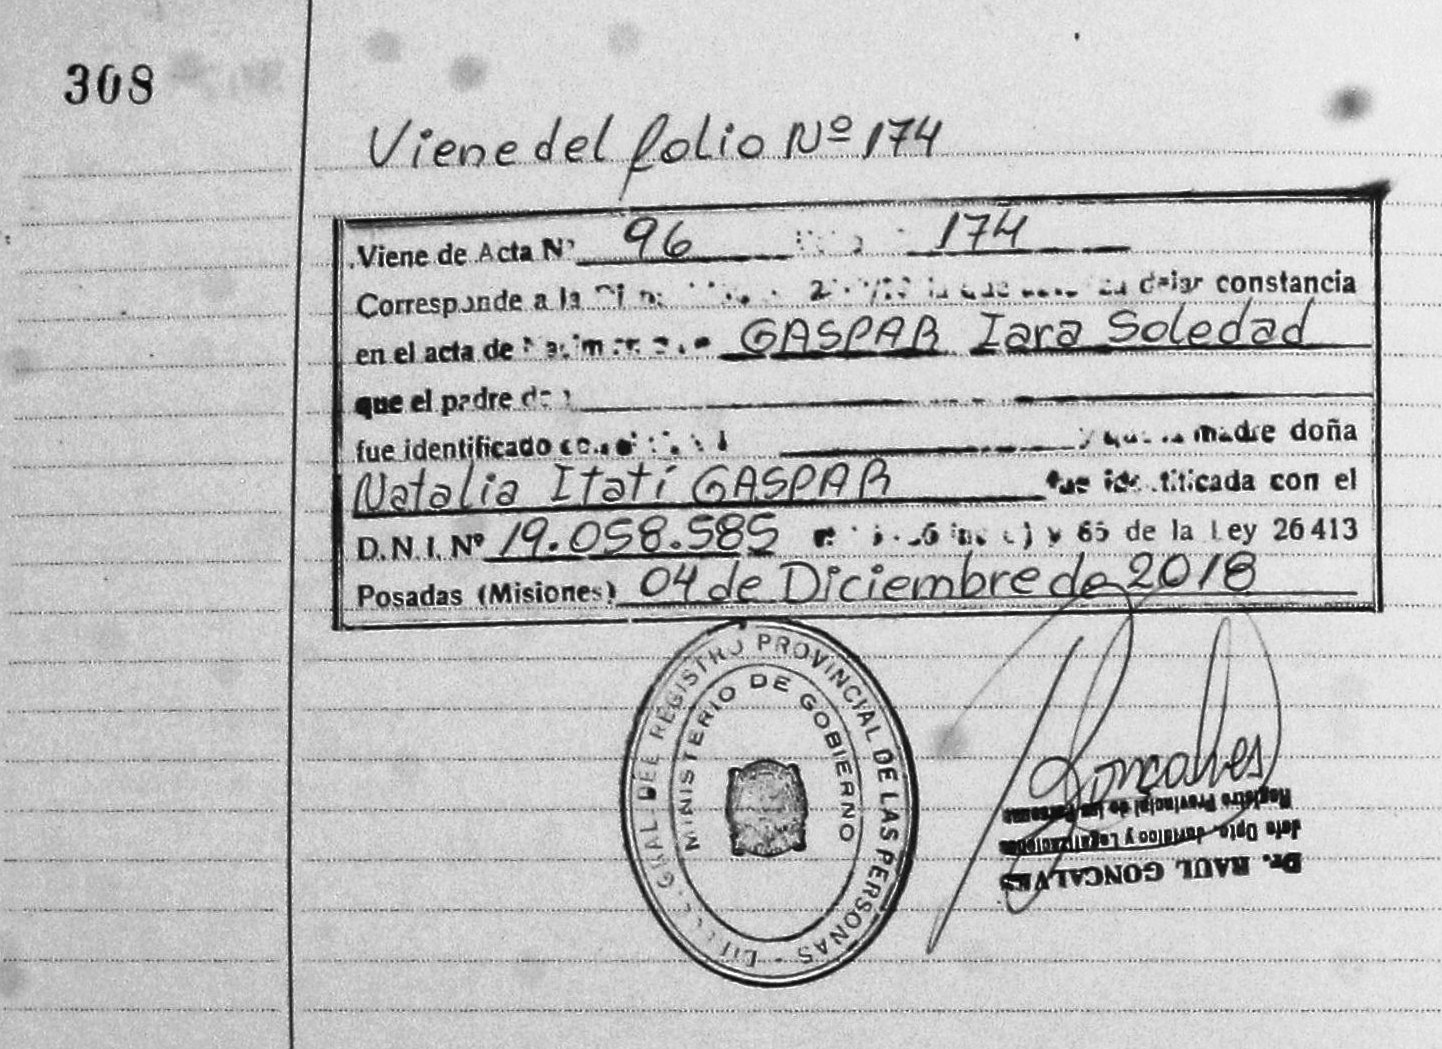 308
Viene del folio Nº 174
Viene de Acta Nº 96 174
Corresponde a la dejar constancia
en el acta de GASPAR Iara Soledad
que el padre
fue identificado madre doña
Natalia Itatí GASPAR fue identificada con el
D.N.I. Nº 19.058.585 y 65 de la Ley 26413
Posadas (Misiones) 04 de Diciembre de 2018
GRAL. DEL REGISTRO PROVINCIAL DE LAS PERSONAS -
MINISTERIO DE GOBIERNO
Goncalves
Dr. RAUL GONCALVES
Jefe Dpto. Jurídico y Legalizaciones
Registro Provincial de las Personas